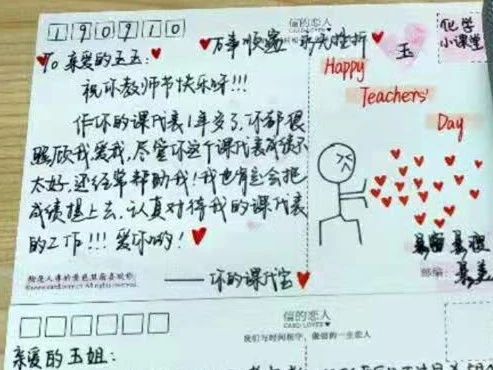 190910
信的恋人
CARD LOVER
To 亲爱的玉玉:
万事顺意
玉
化学
小课堂
祝你教师节快乐呀!!!
Happy
Teachers'
Day
作你的课代表1年多了,你都很
照顾我爱我,尽管你这个课代表成绩不
太好,还经常帮助我!我也有
成绩提上去,认真对待我的课代表
的工作!!!爱你哟!
——你的课代宝
邮编
信的恋人
CARD LOVER
我们与时间相守,做信的一生恋人
亲爱的玉姐: